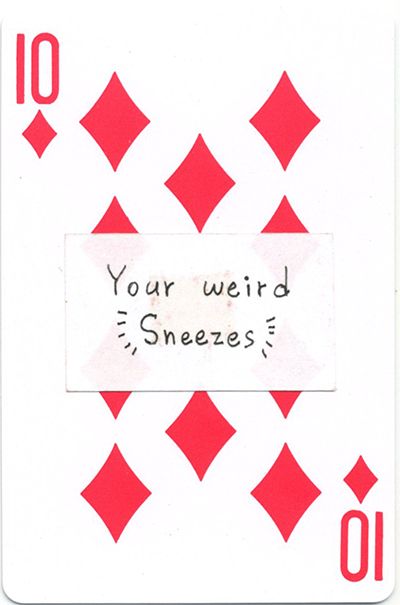 10
Your weird
Sneezes
10